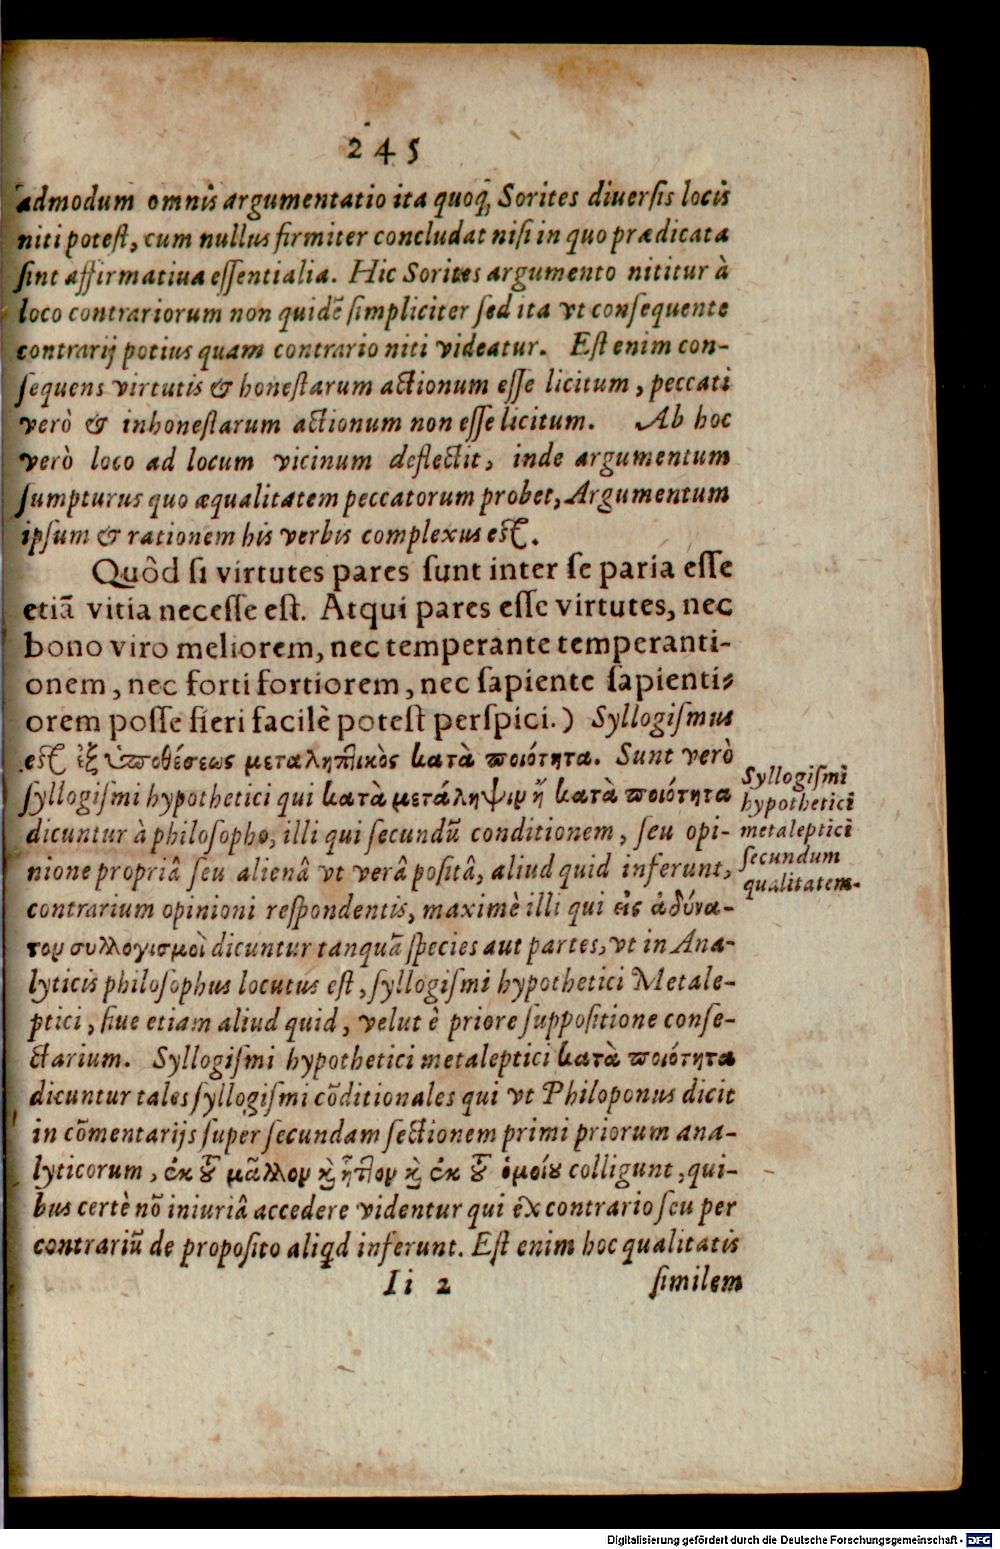 245
admodum omnis argumentatio ita quoq; Sorites diuersis locis
niti potest, cum nullus firmiter concludat nisi in quo prædicata
sint affirmatiua essentialia. Hic Sorites argumento nititur à
loco contrariorum non quidē simpliciter sed ita vt consequente
contrarij potius quam contrario niti videatur. Est enim con-
sequens virtutis & honestarum actionum esse licitum, peccati
verò & inhonestarum actionum non esse licitum. Ab hoc
verò loco ad locum vicinum deflectit, inde argumentum
sumpturus quo æqualitatem peccatorum probet, Argumentum
ipsum & rationem his verbis complexus est.
Quôd si virtutes pares sunt inter se paria esse
etiā vitia necesse est. Atqui pares esse virtutes, nec
bono viro meliorem, nec temperante temperanti-
onem, nec forti fortiorem, nec sapiente sapienti-
orem posse fieri facilè potest perspici.) Syllogismus
est ἐξ ὑποθέσεως μεταληπτικὸς κατὰ ποιότητα. Sunt verò
syllogismi hypothetici qui κατὰ μετάληψιν ἢ κατὰ ποιότητα
dicuntur à philosopho, illi qui secundū conditionem, seu opi-
nione propriâ seu alienâ vt verâ positâ, aliud quid inferunt,
contrarium opinioni respondentis, maximè illi qui εἰς ἀδύνα-
τον συλλογισμοὶ dicuntur tanquā species aut partes, vt in Ana-
lyticis philosophus locutus est, syllogismi hypothetici Metale-
ptici, siue etiam aliud quid, velut è priore suppositione conse-
ctarium. Syllogismi hypothetici metaleptici κατὰ ποιότητα
dicuntur tales syllogismi cōditionales qui vt Philoponus dicit
in cōmentarijs super secundam sectionem primi priorum ana-
lyticorum, ἐκ τοῦ μᾶλλον καὶ ἧττον καὶ ἐκ τοῦ ὁμοίου colligunt, qui-
bus certè nō iniuriâ accedere videntur qui ex contrario seu per
contrariū de proposito aliqd inferunt. Est enim hoc qualitatis
Ii 2 similem
Syllogismi
hypothetici
metaleptici
secundum
qualitatem.
Digitalisierung gefördert durch die Deutsche Forschungsgemeinschaft - DFG